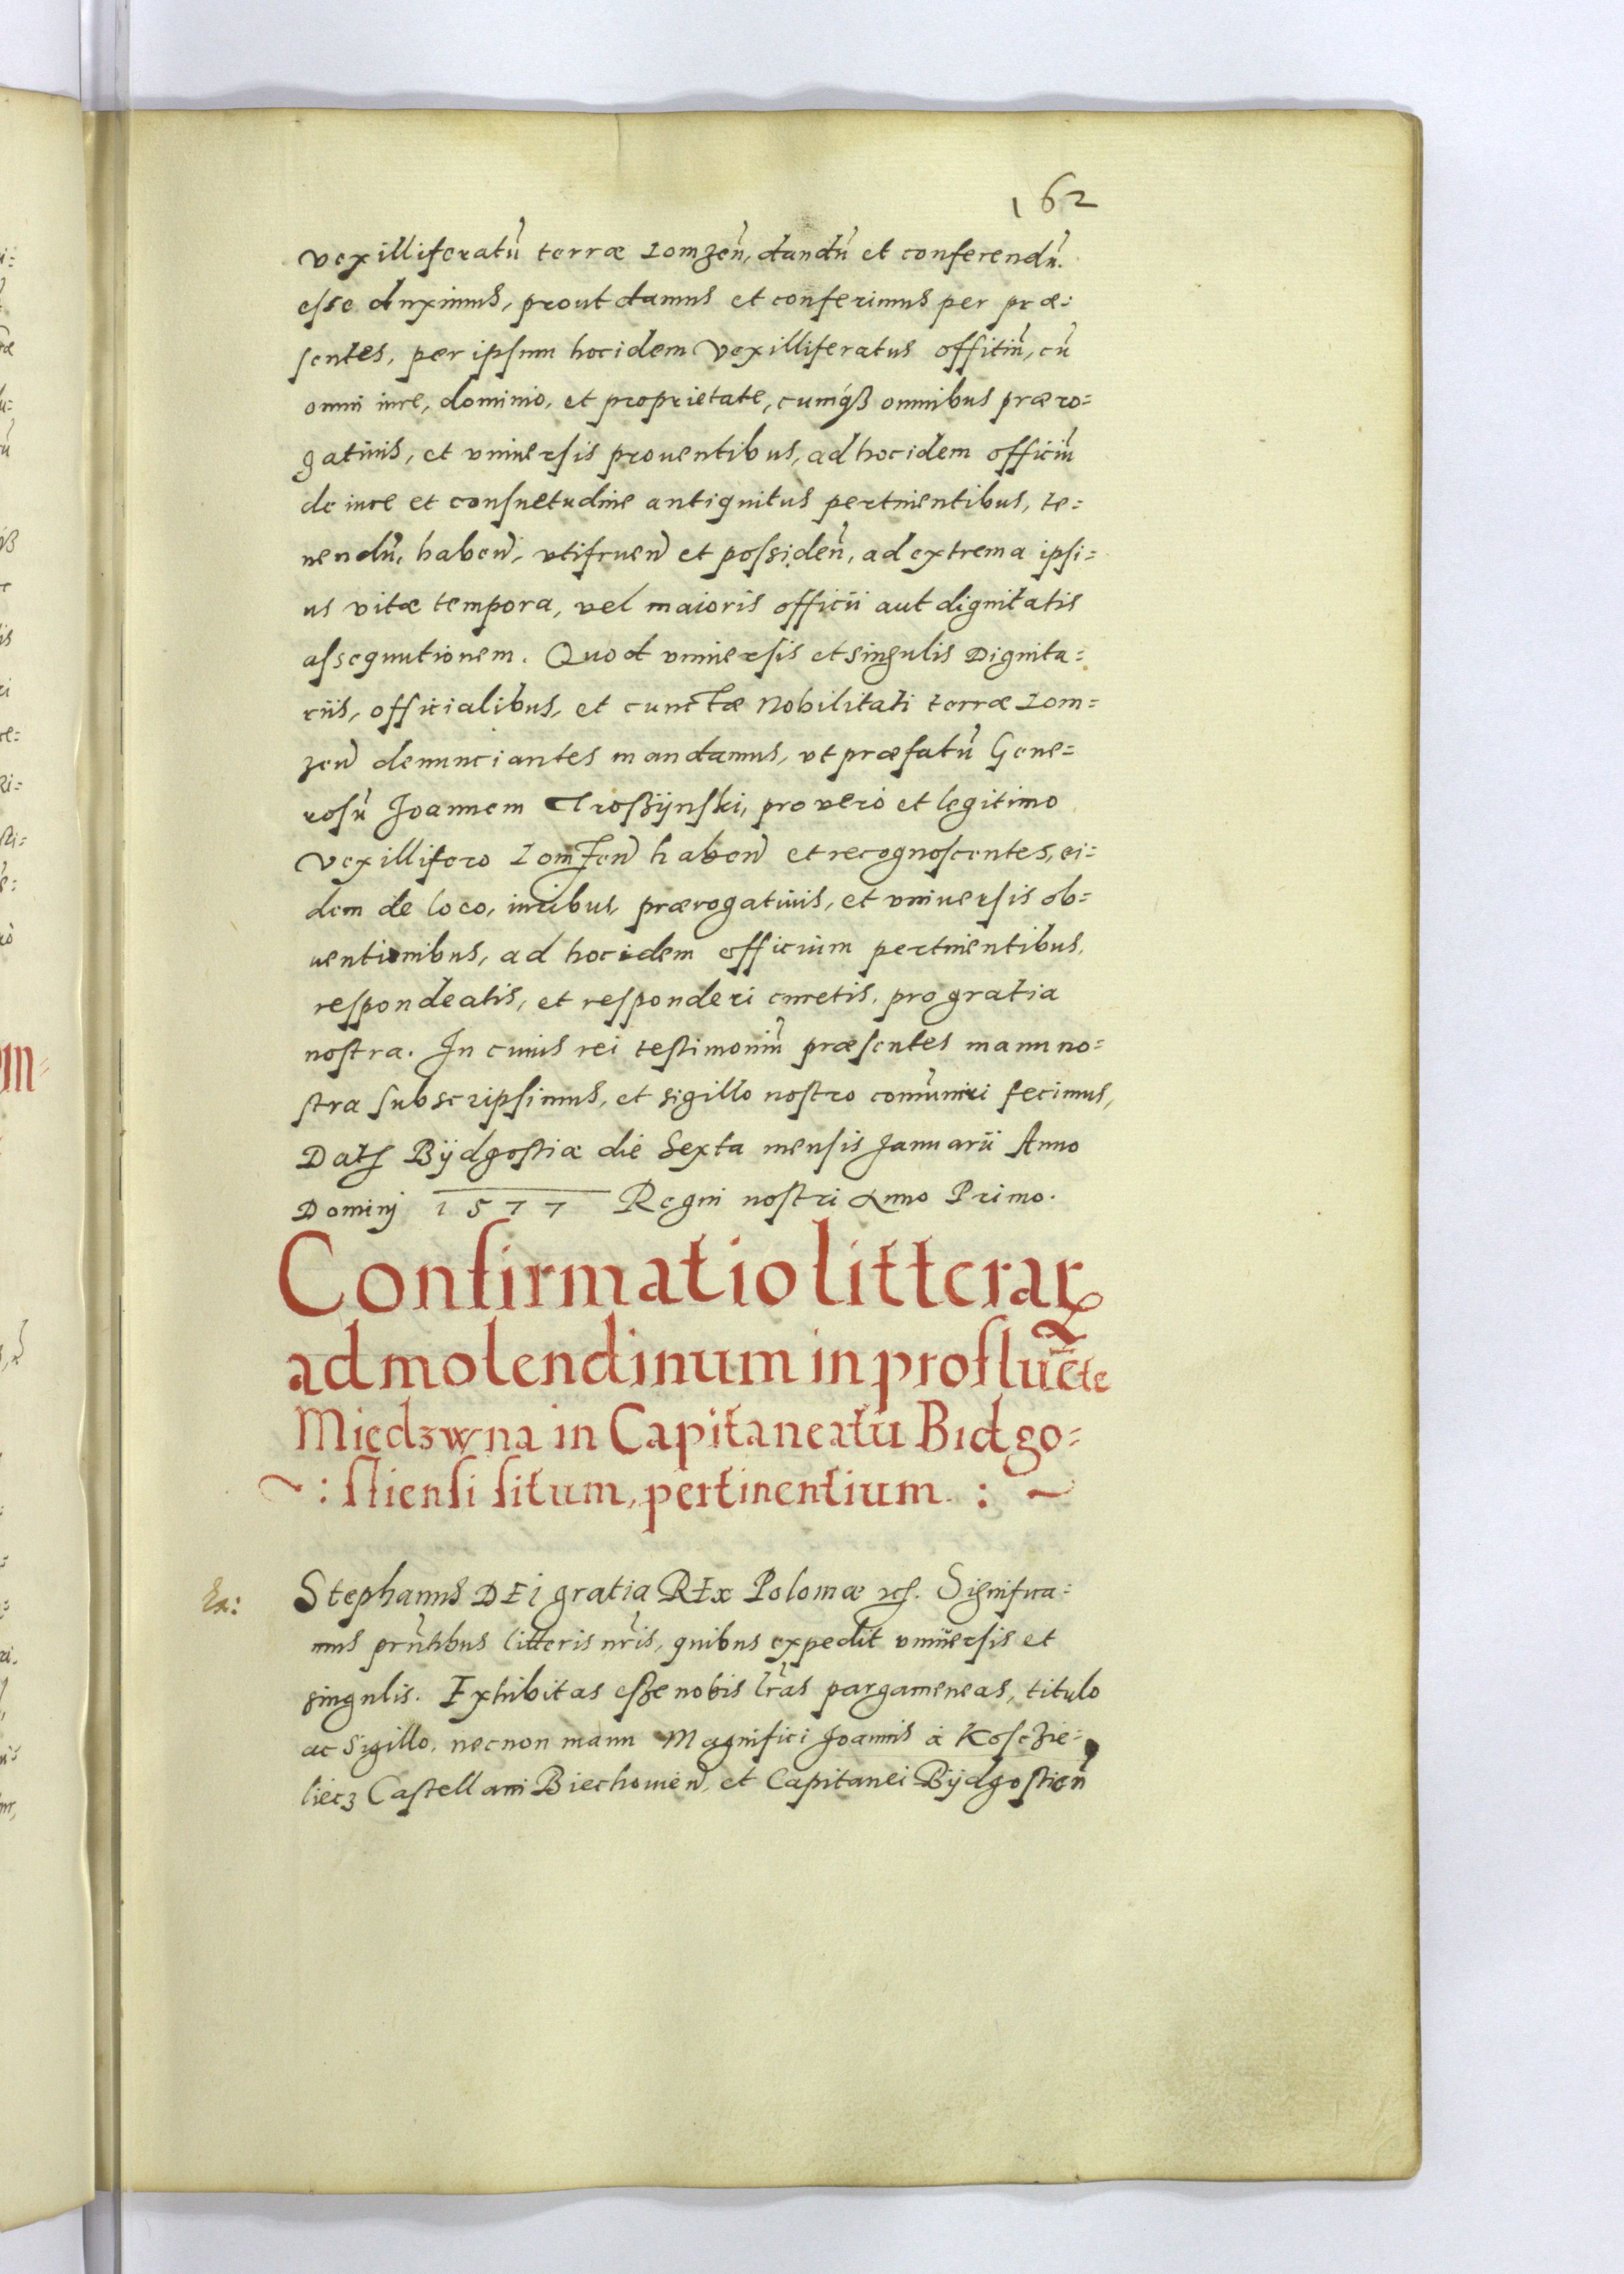 162
vexilliferatū terræ Lomzeñ, dandū et conferendū.
esse duximus, prout damus et conferimus per præ=
sentes, per ipsum hocidem vexilliferatus offitiū, cū
omni iure, dominio, et proprietate, cumqß omnibus præro=
gatiuis, et vniuersis prouentibus, ad hocidem officiū
de iure et consuetudine antiquitus pertinentibus, te=
nendū, habeñ, vtifrueñ et possideñ, ad extrema ipsi=
us vitæ tempora, vel maioris officii aut dignitatis
assequutionem. Quod vniuersis et singulis Dignita=
riis, officialibus, et cunctæ Nobilitati terræ Lom=
zeñ denunciantes mandamus, vt præfatū Gene=
rosū Joannem Troßÿnski, pro vero et legitimo
vexillifero Lomzeñ habeñ et recognoscentes, ei=
dem de loco, iuribus, prærogatiuis, et vniuersis ob=
uentionibus, ad hocidem officium pertinentibus,
respondeatis, et responderi curetis, pro gratia
nostra. In cuius rei testimoniū præsentes manu no=
stra subscripsimus, et sigillo nostro com̄uniri fecimus,
Datę Bÿdgostiæ die Sexta mensis Januarii Anno
Dominj 1577 Regni nostri Anno Primo.
Confirmatio litterarꝝ
ad molendinum in profluēte
Miedzwna in Capitaneatu Bidgo=
~: stiensi situm, pertinentium. : ~
Stephanus DEI gratia REx Poloniæ ꝛcꝭ. Significa=
mus prñtibus litteris nr̃is, quibus expedit vniuersis et
singulis. Exhibitas eße nobis lr̃as pargameneas, titulo
ac Sigillo, necnon manu Magnifici Joannis à Koschie=
liecz Castellani Biechouieñ et Capitanei Bÿdgostieñ